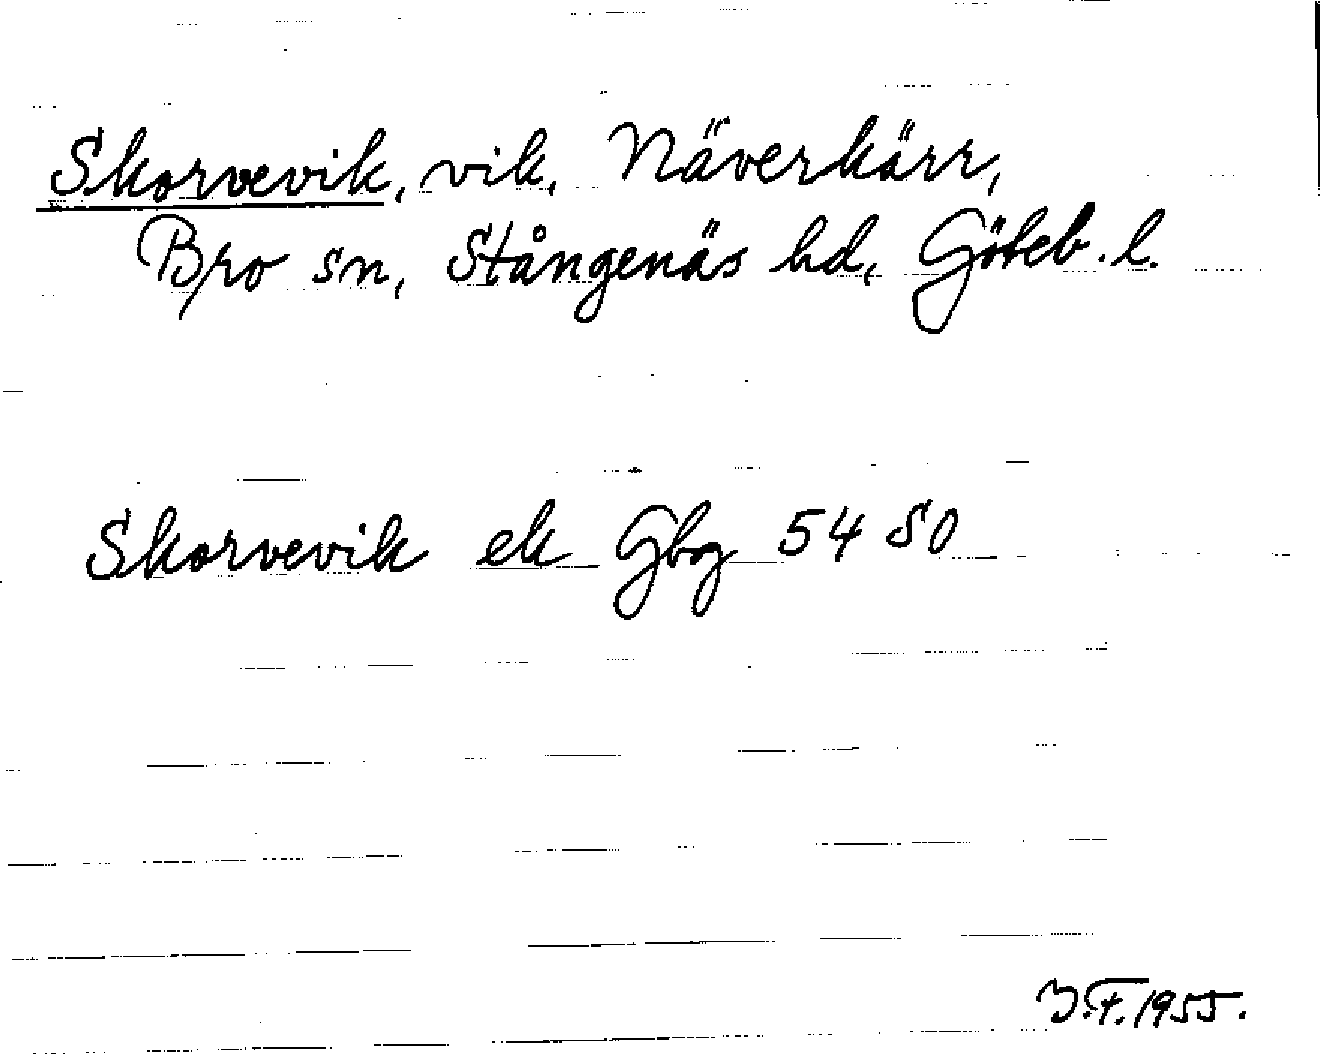 Skorvevik, vik, Näverkärr,
Bro sn, Stångenäs hd, Göteb. l.
Skorvevik ek Gbg 54 SO
J.F. 1955.